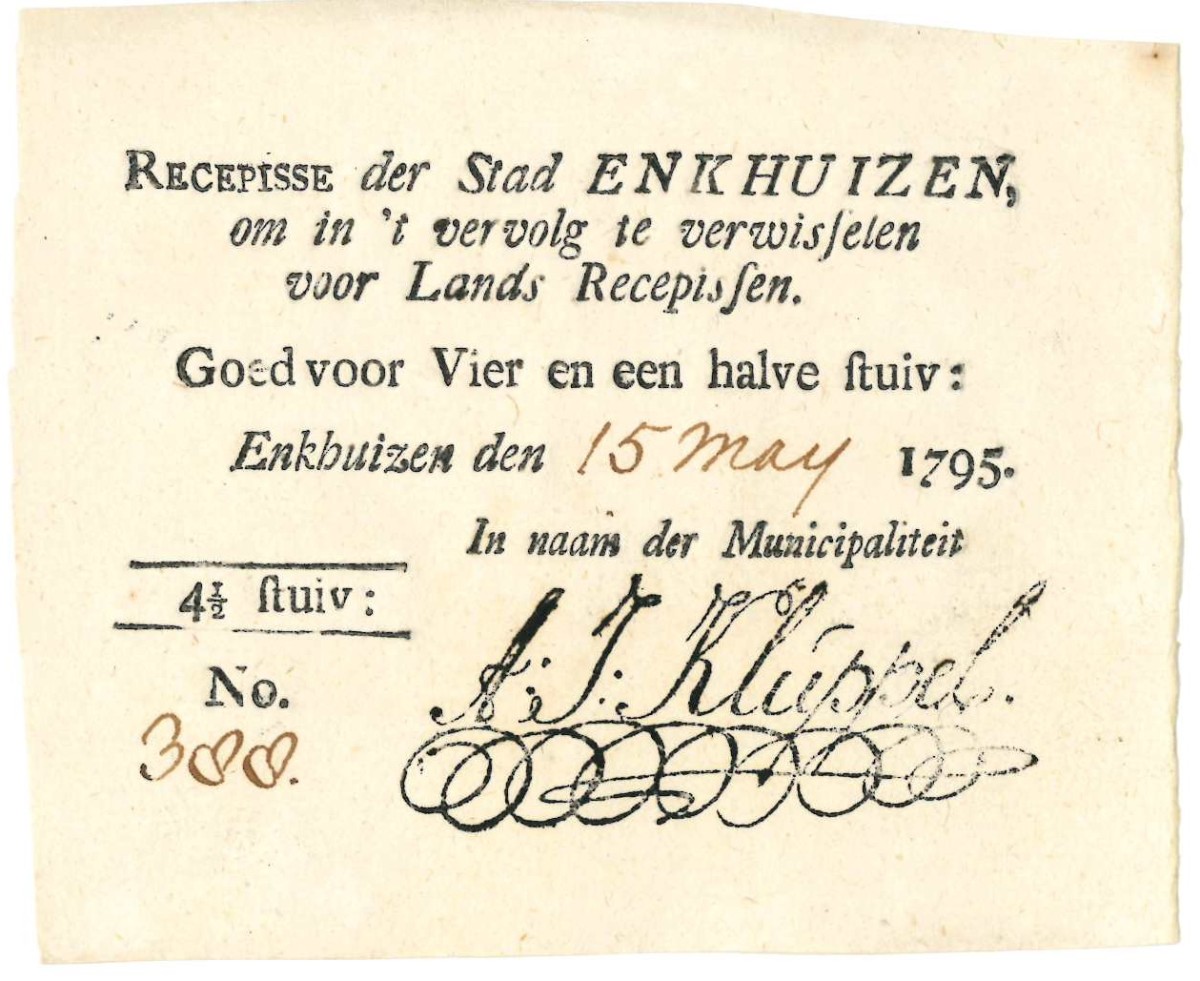 RECEPISSE der Stad ENKHUIZEN,
om in 't vervolg te verwisſelen
voor Lands Recepisſen.
Goed voor Vier en een halve ſtuiv:
Enkhuizen den 15 May 1795.
In naam der Municipaliteit
4½ ſtuiv:
A: J: Klúppel.
No.
388.